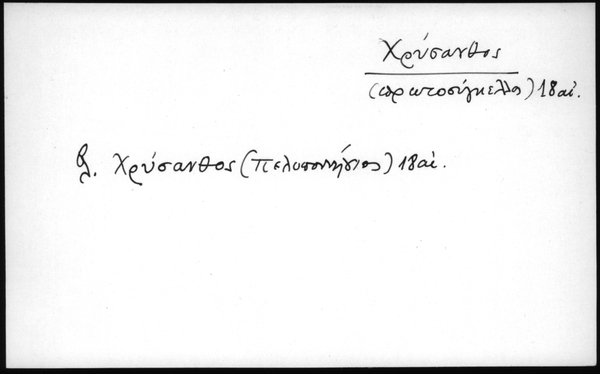 Χρύσανθος
(πρωτοσύγκελλος) 18 αἰ.
βλ. Χρύσανθος (Πελοποννήσιος) 18 αἰ.